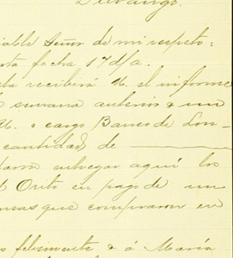 Durango.
iable Señor de mi respeto:
fecha 17 d/a.
recibirá U. el informe
semana anterior & un
U. a cargo Banco de Lon-
cantidad de
entregar aquí los
Orito en pago de un
que compraron en
felizmente & á María